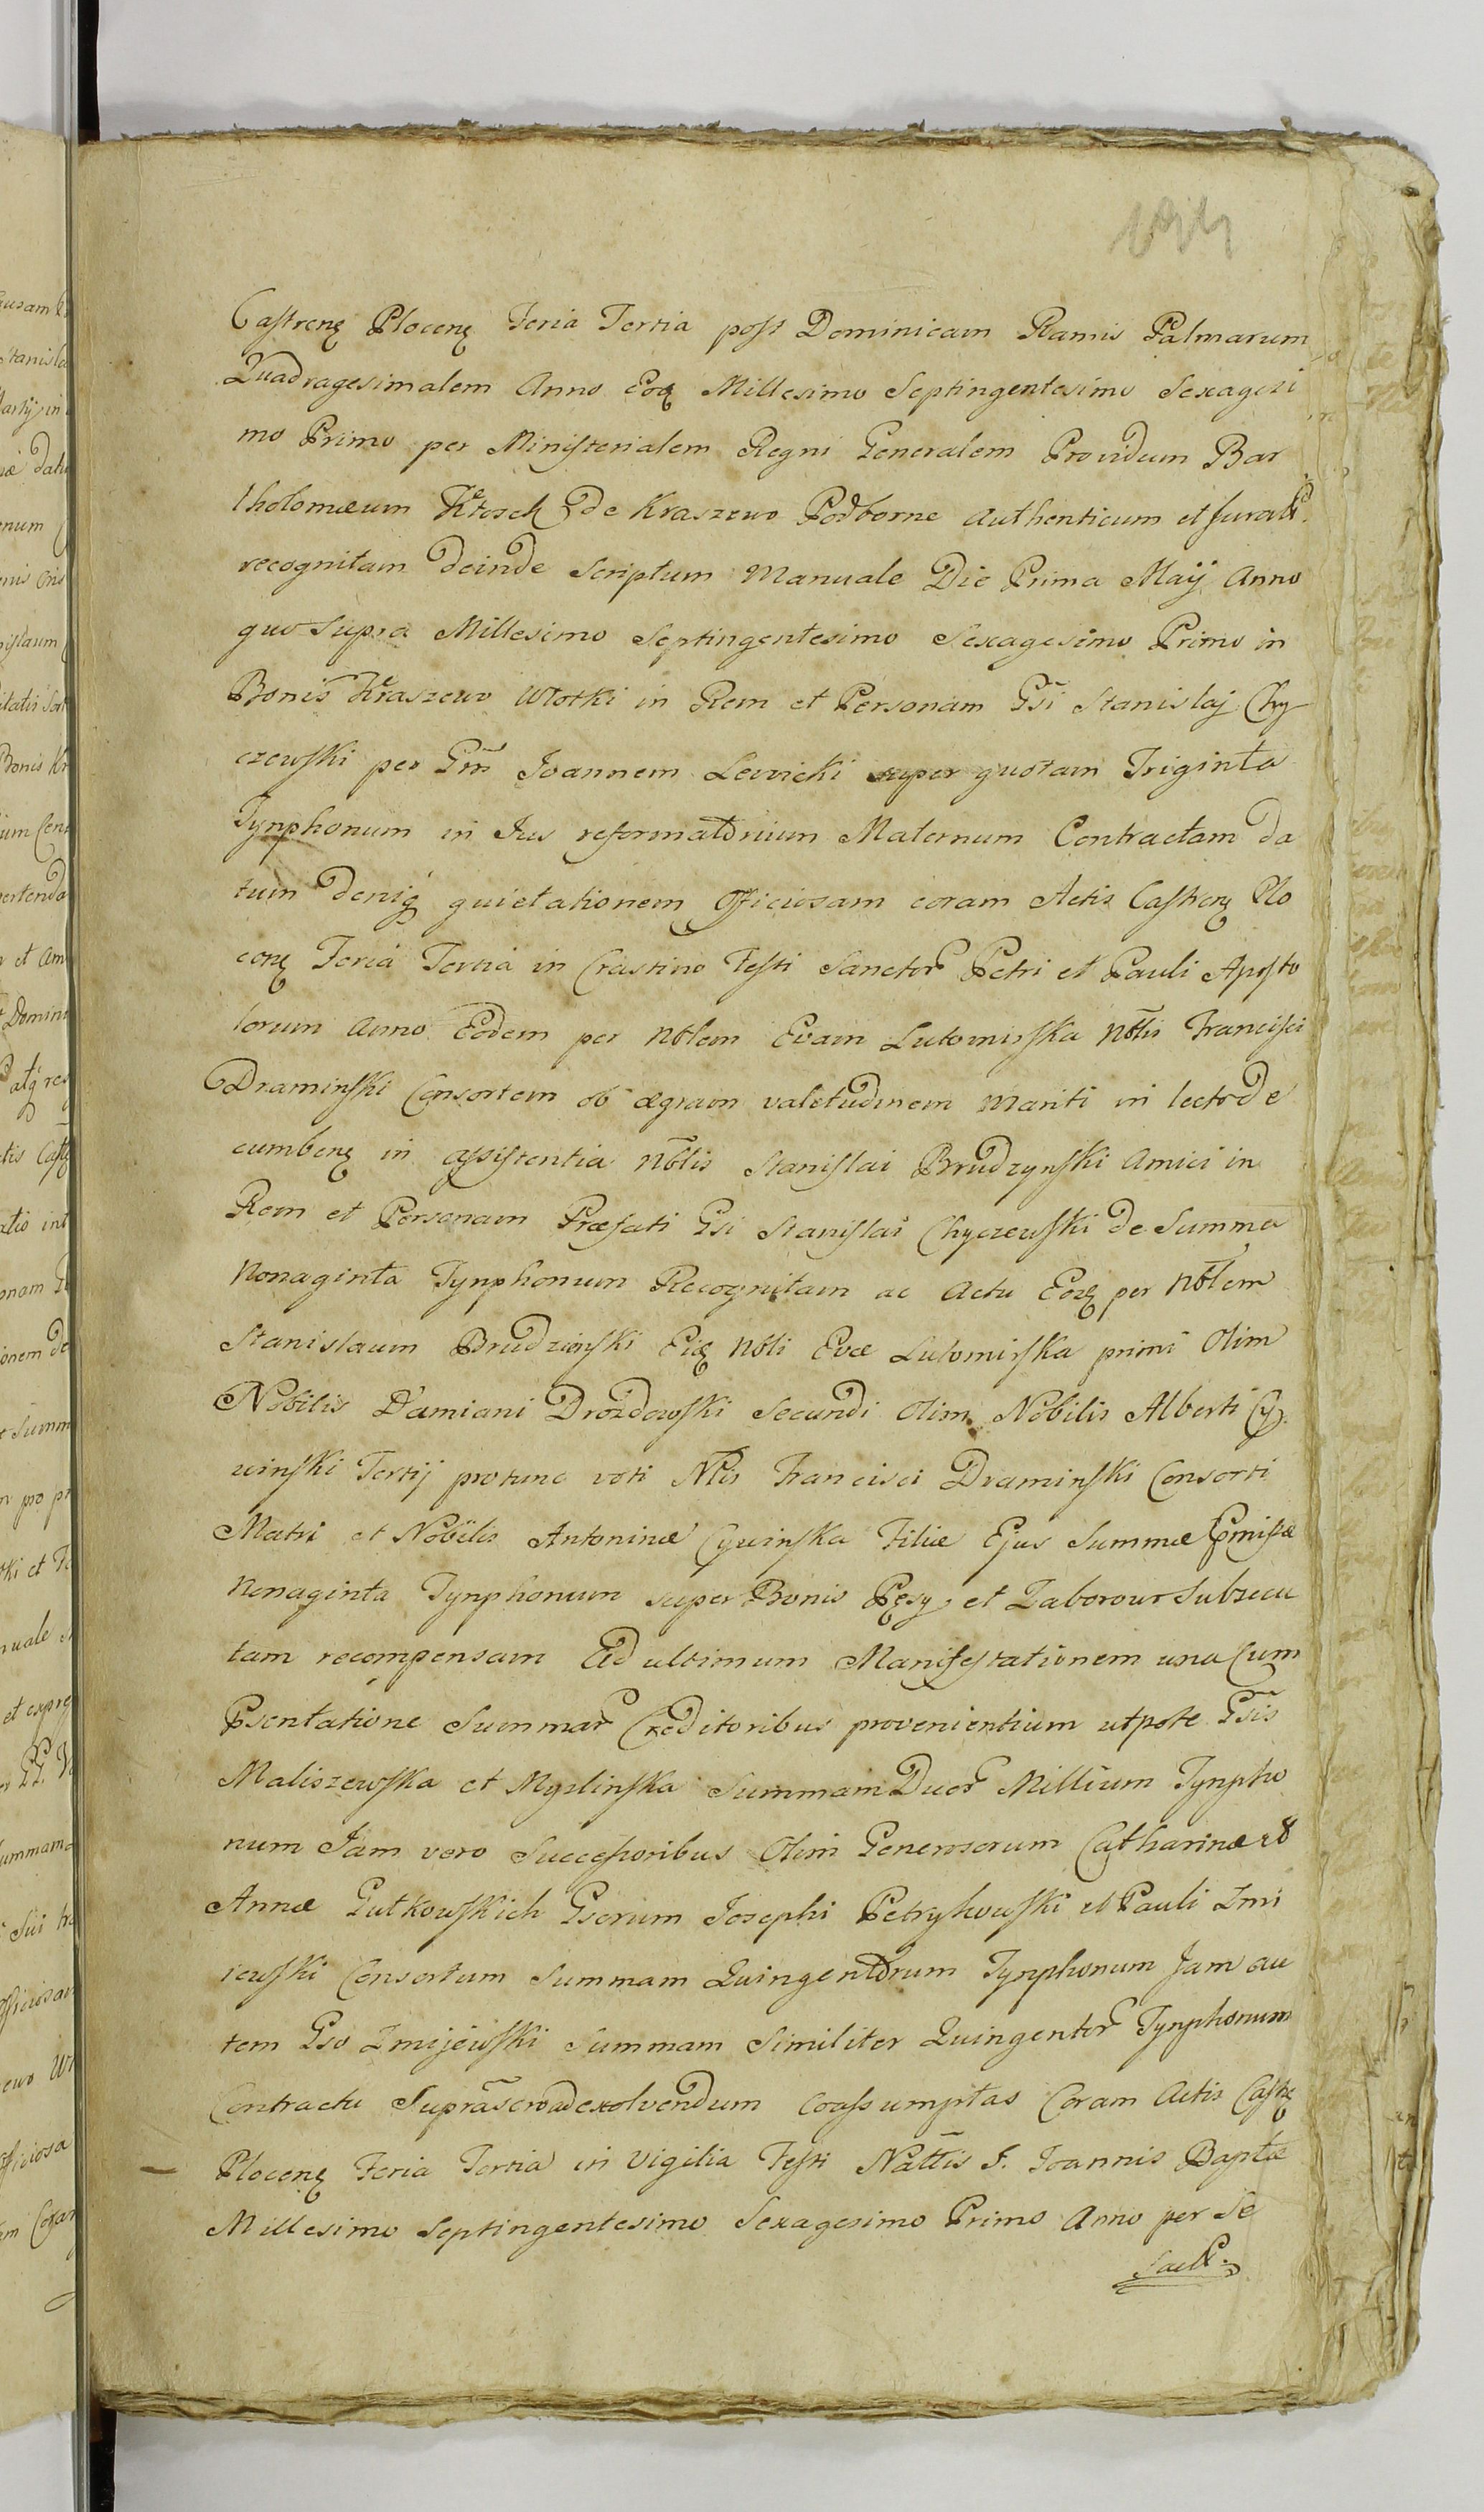 Castrenę Plocenę Feria Tertia post Dominicam Ramis Palmarum
Quadragesimalem Anno Eoę Millesimo Septingentesimo Sexagesi
mo Primo per Ministerialem Regni Generalem Providum Bar
tholomæum Ktosek de Kraszewo Podborne authenticum et
recognitam deinde Scriptum Manuale Die Prima Maij Anno
quo Supra Millesimo Septingentesimo Sexagesimo Primo in
Bonis Kraszewo Wlotki in Rem et Personam Gsi Stanislaj Chy
czewski per Gm Joannem Lewicki super quotam Triginta
Tynphonum in Jus reformatorium Maternum Contractam da
tum deniq quietationem Officiosam coram Actis Castrenę Plo
cenę Feria Tertia in Crastino Festi Sanctor Petri et Pauli Aposto
lorum Anno Eodem per Nblem Evam Lutomirska Nblis Francisci
Draminski Consortem ob ægram valetudinem Mariti in lecto de
cumbenę in assistentia Nblis Stanislai Brudzynski Amici in
Rem et Personam Præfati Gsi Stanislai Chyczewski de Summa
Nonaginta Tynphonum Recognitam ac Actu Eoę per Nblem
Stanislaum Brudzinski Eię Nbli Evæ Lutomirska primi Olim
Nobilis Damiani Drozdowski Secundi Olim Nobilis Alberti Cy
winski Tertij protunc voti Nlis Francisci Draminski Consorti
Matri et Nobilis Antoninæ Cywinska Filiæ Ejus Summæ Pmissæ
Nonaginta Tynphonum super Bonis Pęsy et Zaborowr Subsecu
tam recompensam Ad ultimum Manifestationem una Cum
Psentatione Summar Creditoribus provenientium utpote Gsis
Maliszewska et Myslinska Summam Duor Millium Tynpho
num Jam vero Successoribus Olim Generosorum Catharinæ et
Annæ Gutkowskich Gsorum Josephi Petrykowski et Pauli Zmi
iewski Consortum Summam Quingentorum Tynphonum Jam au
tem Gso Zmijewski Summam Similiter Quingentor Tynphonum
Contractu ad exolvendum coassumptas Coram Actis Castrę
Plocenę Feria Tertia in Vigilia Festi Nattis S. Joannis Baptæ
Millesimo Septingentesimo Sexagesimo Primo Anno per Se